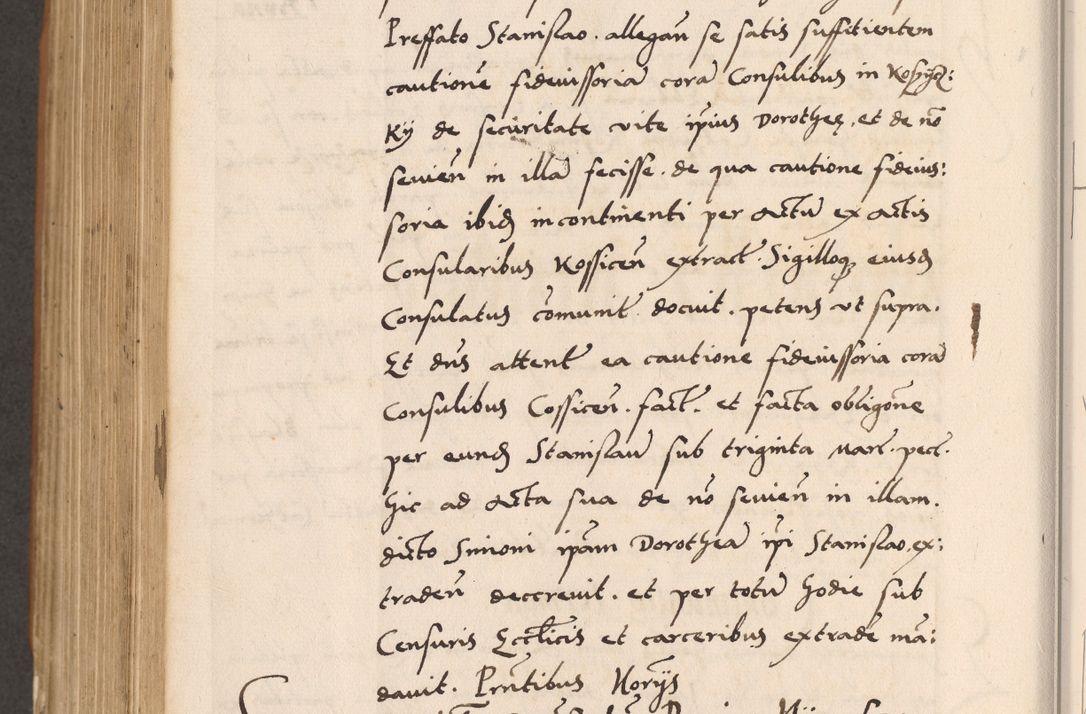 Preffato Stanislao. allegan̄ se satis suffitientem
cautionē fideiussoriā corā Consulibus in
Kij de securitate vite ip̄ius Dorotheę. et de nō
seuien̄ in illā fecisse. de qua cautione fideius:
soria ibid incontinenti per actū ex actis
Consularibus Kossicen̄ extract. Sigilloq eiusd
Consulatus cōmunit docuit. petens vt supra.
Et dn̄s attent ea cautione fideiussoria corā
Consulibus Cossicen̄. fact. et facta obligōne
per eund Stanislaū sub triginta Marc. pecc.
hic ad acta sua de nō seuien̄ in illam.
dicto Simoni ip̄am Dorotheā ip̄i Stanislao. ex:
traden̄ deccreuit. et per totū hodie sub
Censuris Eccl̄icis et carceribus extradē mā:
dauit. Pn̄tibus Horyis